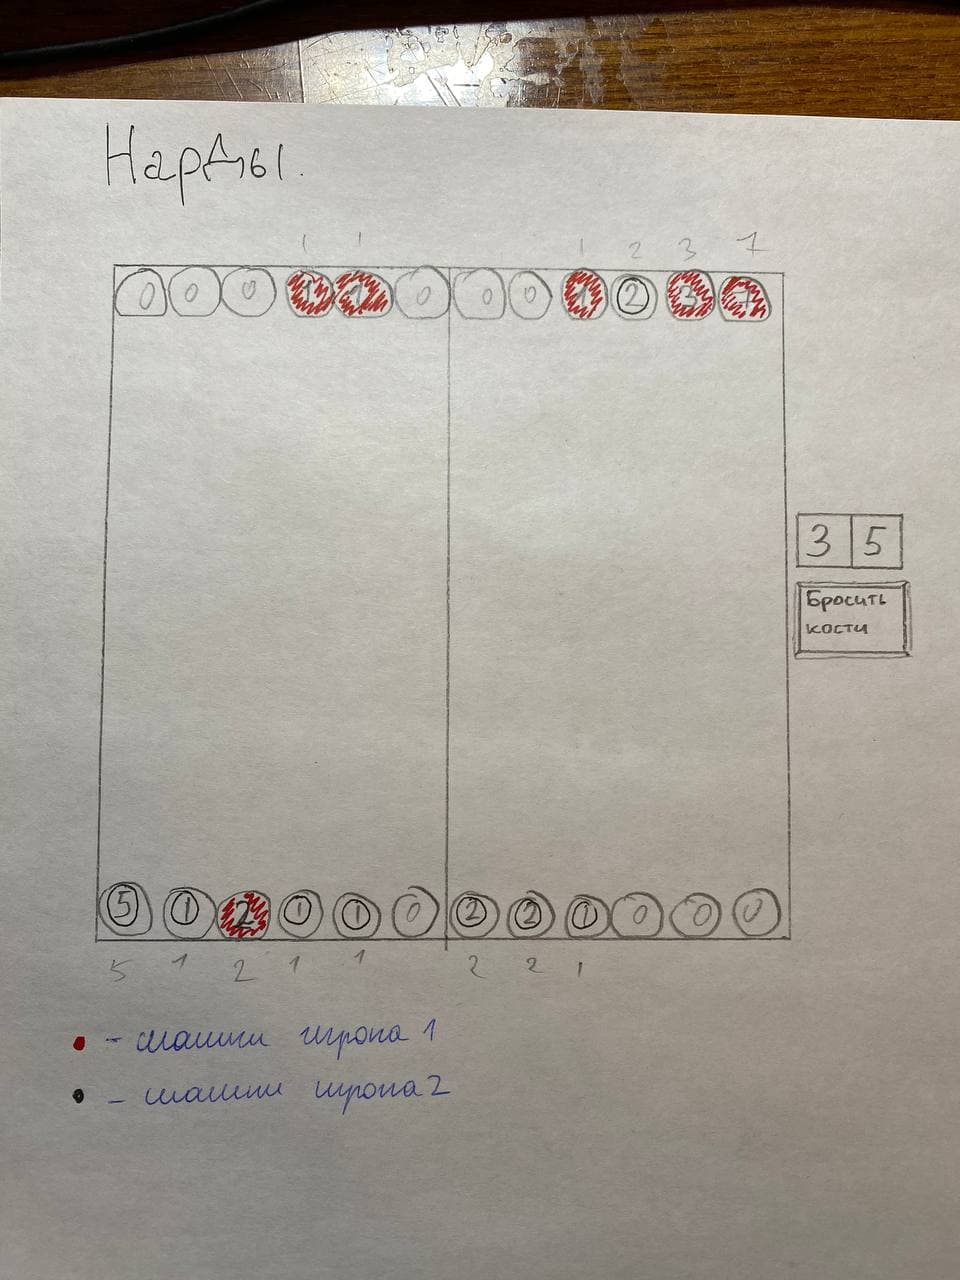 Нарды.
1 1 1 2 3 7
0 0 0 1 1 0 0 0 1 2 3 7
3 5
Бросить
кости
5 1 2 1 1 0 2 2 1 0 0 0
5 1 2 1 1 2 2 1
- шашки игрока 1
- шашки игрока 2